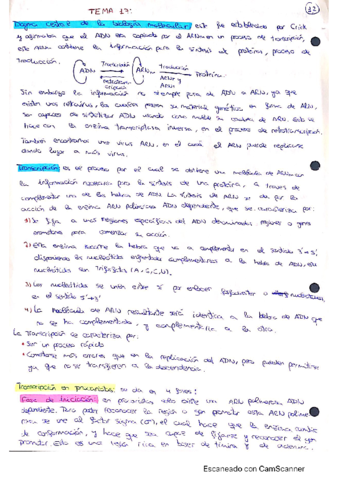 TEMA 17:
12
Dogma central de la biología molecular: este fue establecido por Crick
y afirmaba que el ADN era copiado por el ARNm en un proceso de transcripción,
este ARNm contiene la información para la síntesis de proteína, proceso de
traducción.
Traducción
ADN ARNm Proteína.
ADN y
ARN
Sin embargo la información no siempre pasa de ADN a ARN, ya que
existen unos retrovirus, los cuales poseen su material genético en forma de ARN,
son capaces de sintetizar ADN usando como molde su cadena de ARN. Esto se
hace con la enzima transcriptasa inversa, en el proceso de retrotranscripción.
También encontramos unos virus ARN, en el cual el ARN puede replicarse
dando lugar a más virus.
Transcripción: es el proceso por el cual se obtiene una molécula de ARN con
la información necesaria para la síntesis de una proteína, a través de
complementar una de las hebras de ADN. La síntesis de ARN se da por la
acción de la enzima ARN polimerasa ADN dependiente, que se caracteriza por:
1) Se fija a unas regiones específicas del ADN denominadas regiones o genes
promotores para comenzar su acción.
2) Esta enzima recorre la hebra que va a complementar en el sentido 3'→5',
disponiendo los nucleótidos enfrentados complementarios a la hebra de ADN. Los
nucleótidos son trifosfato (A,G,C,U).
3) Los nucleótidos se unen entre sí por enlaces fosfodiéster
en el sentido 5'→3'
4) La molécula de ARN resultante será idéntica a la hebra de ADN que
no se ha complementado, y complementaria a la otra.
La transcripción se caracteriza por:
* Ser un proceso rápido
* Comete más errores que en la replicación del ADN, pero pueden permitirse
ya que no se transfieren a la descendencia.
Transcripción en procariotas: se da en 4 fases:
Fase de iniciación: en procariotas sólo existe un ARN polimerasa ADN
dependiente. Para poder reconocer la región o gen promotor esta ARN polime-
rasa se une al factor sigma (σ), el cual hace que la enzima cambie
de conformación, y hace que sea capaz de fijarse y reconocer el gen
promotor. Esto es una región rica en bases de timina y de adenina.
Escaneado con CamScanner